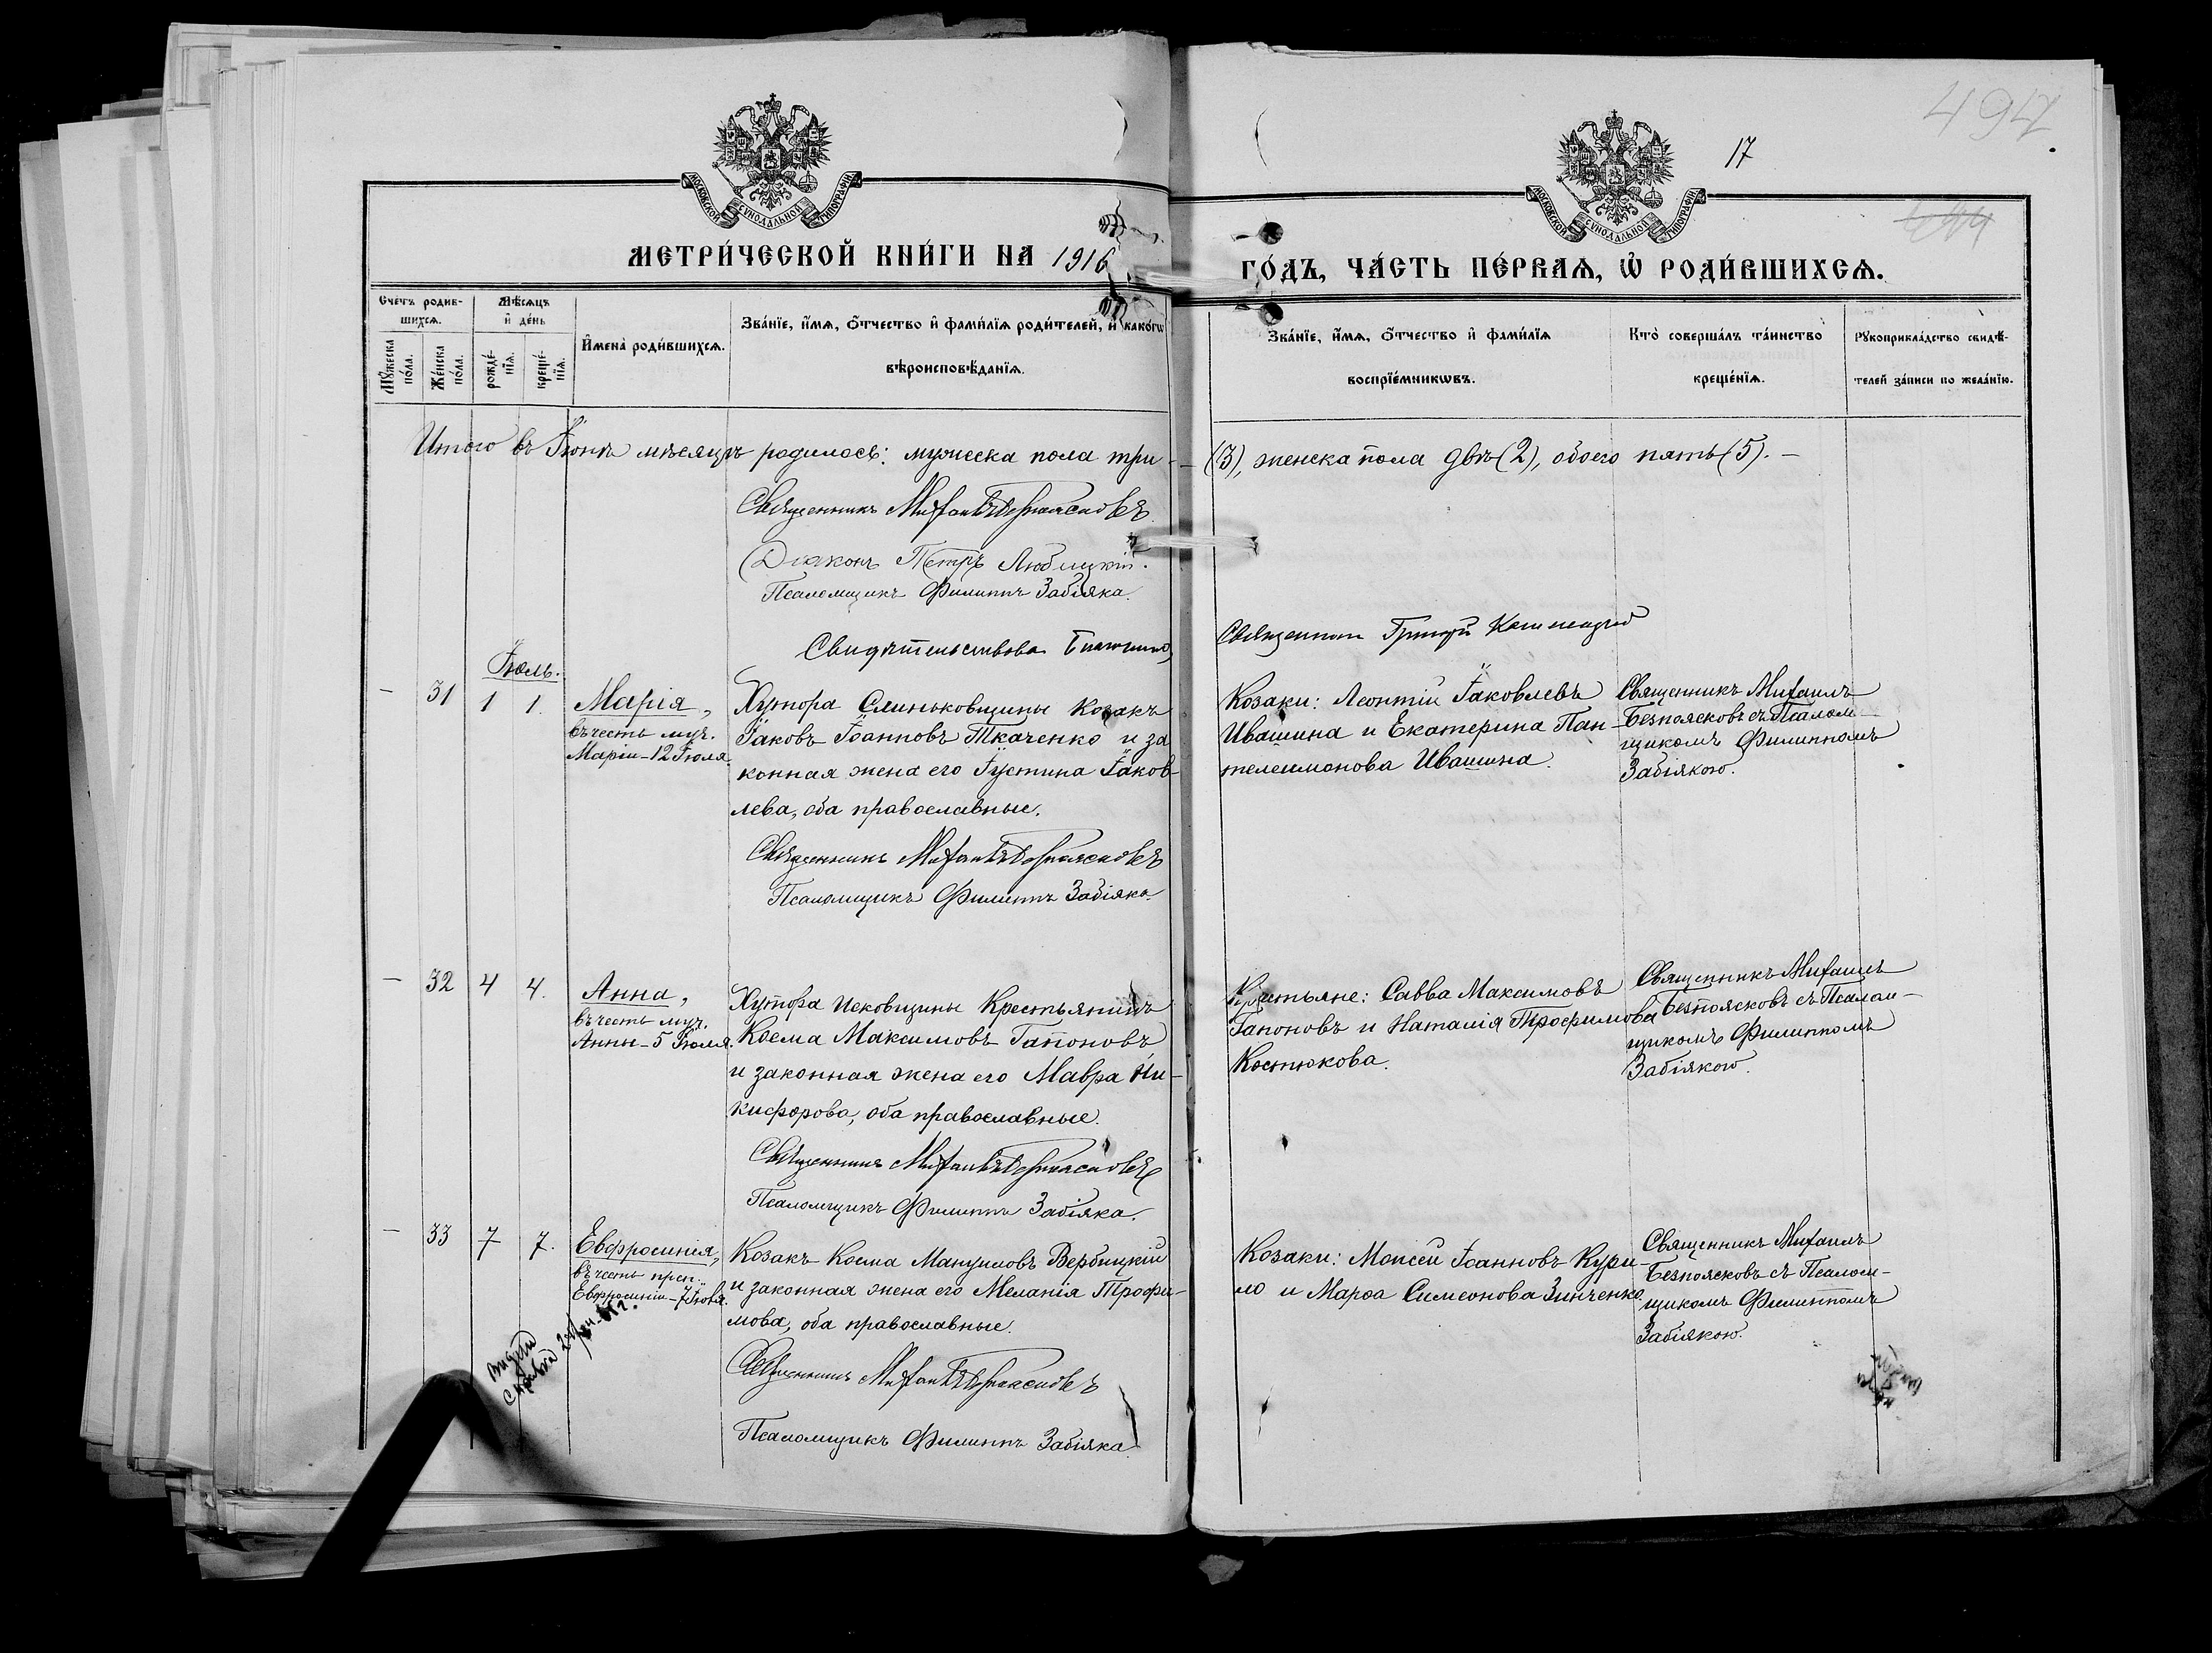 494
17
МОСКОВСКОЙ СѴНОДАЛЬНОЙ ТИПОГРАФІИ
МОСКОВСКОЙ СѴНОДАЛЬНОЙ ТИПОГРАФІИ
МЕТРИ́ЧЕСКОЙ КНИ́ГИ НА 1916
ГО́ДЪ, ЧА́СТЬ ПЕ́РВАѦ, Ѡ҆ РОДИ́ВШИХСѦ.
Сче́тъ родив-
шихсѧ.
Мѣ́сѧцъ
и҆ де́нь
Мꙋ́жеска
по́ла.
Же́нска
по́ла.
рожде́-
нїѧ.
креще́-
нїѧ.
И҆мена̀ роди́вшихсѧ.
Зва́нїе, и҆́мѧ, ѻ҆́тчество и҆ фами́лїѧ роди́телей, и҆ како́гѡ
вѣроисповѣ́данїѧ.
Зва́нїе, и҆́мѧ, ѻ҆́тчество и҆ фами́лїѧ
воспрїе́мникѡвъ.
Кто̀ соверша́лъ та́инство
креще́нїѧ.
Рꙋкоприкла́дство свидѣ́-
телей за́писи по жела́нїю.
Итого въ Іюнѣ мѣсяцѣ родилось: мужеска пола три - (3), женска пола двѣ (2), обоего пять (5). -
Священникъ Михаилъ Безпоясковъ
Діаконъ Петръ Люблицкій.
Псаломщикъ Филиппъ Забіяка.
Священникъ Григорій
Іюль.
- 31 1 1. Марія,
въ честь муч.
Маріи - 12 Іюля.
Хутора Слиньковщины Козакъ
Іаковъ Іоанновъ Ткаченко и за
конная жена его Іустина Іаков-
лева, оба православные.
Священникъ Михаилъ Безпоясковъ
Псаломщикъ Филиппъ Забіяка.
Козаки: Леонтій Іаковлевъ
Ивашина и Екатерина Пан-
телеимонова Ивашина.
Священникъ Михаилъ
Безпоясковъ съ Псалом-
щикомъ Филиппомъ
Забіякою.
- 32 4 4. Анна,
въ честь муч.
Анны - 5 Іюля.
Хутора Исковщины Крестьянинъ
Косма Максимовъ Гапоновъ
и законная жена его Мавра Ни-
кифорова, оба православные.
Священникъ Михаилъ Безпоясковъ
Псаломщикъ Филиппъ Забіяка.
Крестьяне: Савва Максимовъ
Гапоновъ и Наталія Трофимова
Костюкова.
Священникъ Михаилъ
Безпоясковъ съ Псалом-
щикомъ Филиппомъ
Забіякою.
- 33 7 7. Евфросинія,
въ честь преп.
Евфросиніи - 7 Іюля.
Козакъ Косма Мануиловъ Вербицкій
и законная жена его Меланія Трофи-
мова, оба православные.
Священникъ Михаилъ Безпоясковъ
Псаломщикъ Филиппъ Забіяка.
Козаки: Моисей Іоанновъ Кури-
ло и Марѳа Симеонова Зинченко.
Священникъ Михаилъ
Безпоясковъ съ Псалом-
щикомъ Филиппомъ
Забіякою.